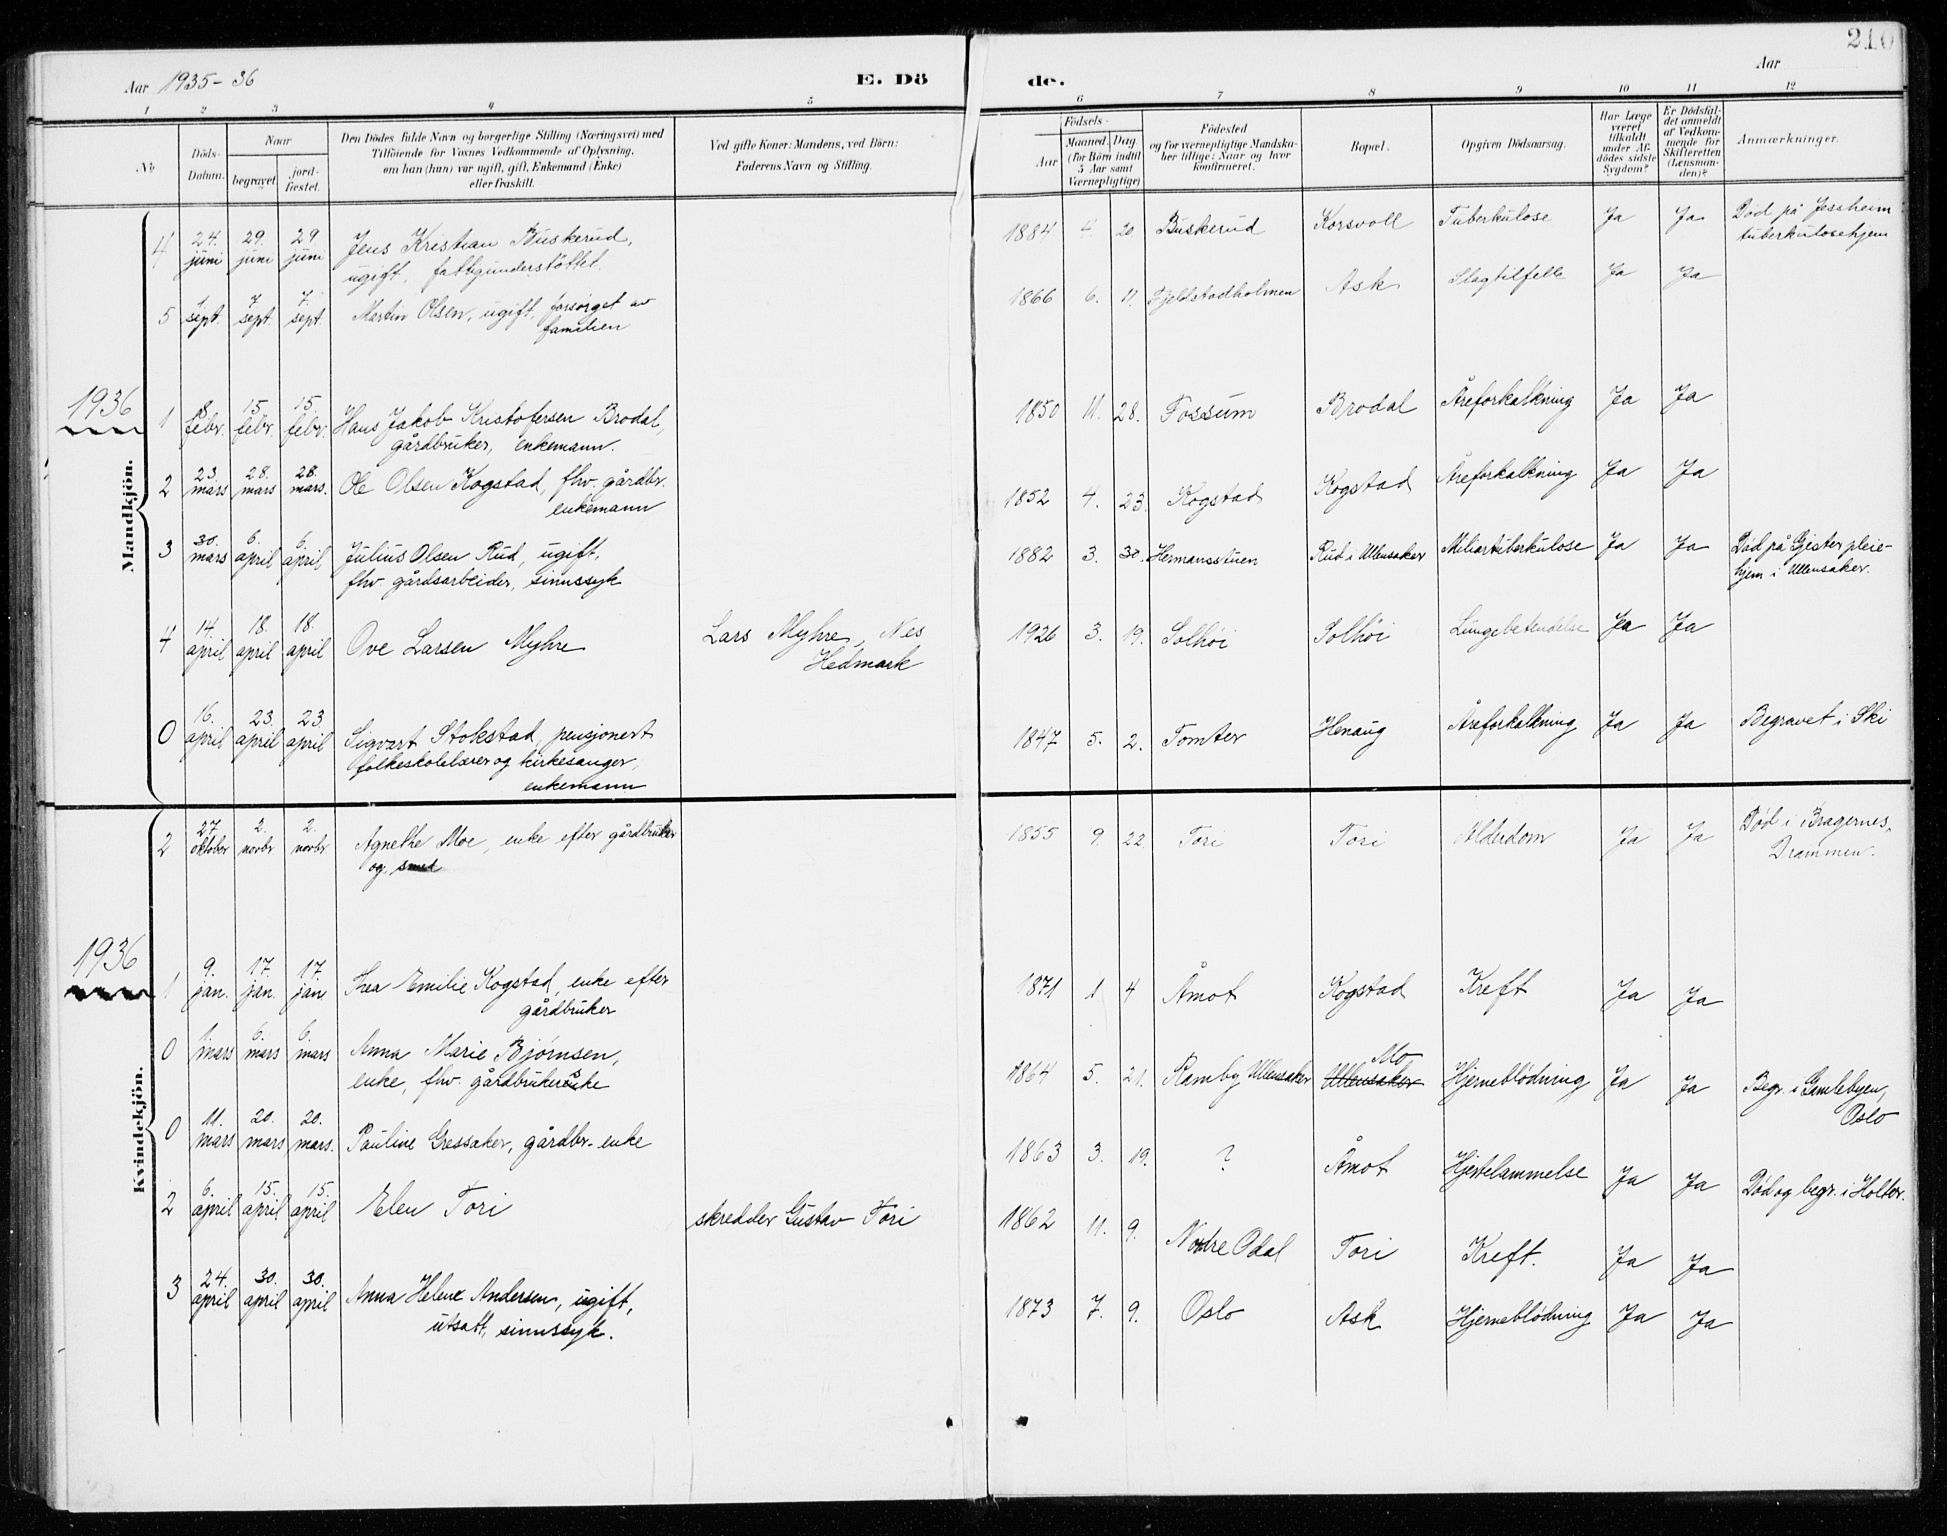 210
Aar 1935-36
E. Dö
de.
Aar
1 2 3 4 5 6 7 8 9 10 11 12
No.
Döds-
Datum.
Naar
begravet.
jord-
fæstet.
Den Dödes fulde Navn og borgerlige Stilling (Næringsvei) med
Tilföiende for Voxnes Vedkommende af Oplysning,
om han (hun) var ugift, gift, Enkemand (Enke)
eller fraskilt.
Ved gifte Koner: Mandens, ved Börn:
Faderens Navn og Stilling.
Födsels-
Aar
Maaned. Dag.
(for Börn indtil
5 Aar samt
Værnepligtige)
Födested
og for værnepligtige Mandska-
ber tillige: Naar og hvor
konfirmeret.
Bopæl.
Opgiven Dödsaarsag.
Har Læge
været
tilkaldt
under Af-
dödes sidste
Sygdom?
Er Dödsfal-
det anmeldt
af Vedkom-
mende for
Skifteretten
(Lensman-
den)?
Anmærkninger.
Mandkjön.
4 24. juni 29. juni 29. juni Jens Kristian Buskerud, 1884 4. 20 Buskerud Korsvoll Tuberkulose Ja Ja Död på Jessheim
ugift, fattigunderstöttet. tuberkulosehjem
5 1 sept. 7 sept. 7. sept. Martin Olsen, ugift, forsörget av 1866 6. 11. Fjeldstadholmen Ask Slagtilfelle Ja Ja
familien
1936
1 8 febr. 15. febr. 15. febr. Hans Jakob Kristofersen Brodal, 1850 11. 28. Fossum Brodal Åreforkalkning Ja Ja
gårdbruker, enkemann.
2 23. mars 28. mars 28. mars. Ole Olsen Kogstad, fhv. gårdbr. 1852 4. 23. Kogstad Kogstad Åreforkalkning Ja Ja
enkemann
3 30. mars 6. april 6. april Julius Olsen Rud, ugift, 1882 3. 30. Hermansstuen Rud i Ullensaker Miliartuberkulose Ja Ja Död på Gjister pleie-
fhv. gårdsarbeider, sinnssyk hjem i Ullensaker.
4 14. april 18. april 18. april Ove Larsen Myhre Lars Myhre, Nes 1926 3. 19. Solhöi Solhöi Lungebetendelse Ja Ja
Hedmark
0 16. april 23. april 23. april Sigvart Stokstad, pensjonert 1847 5. 2. Tomter Henaug Åreforkalkning Ja Ja Begravet i Ski
folkeskolelærer og kirkesanger,
enkemann
Kvindekjön.
2 27. oktober 2. novbr 2. novbr Agnethe Moe, enke efter gårdbruker 1855 9. 22. Tori Tori Alderdom Ja Ja Död i Bragernes,
og smed Drammen.
1936
1 9. jan. 17. jan. 17. jan Thea Emilie Kogstad, enke efter 1871 1 4 Åmot Kogstad Kreft Ja Ja
gårdbruker
0 1 mars 6. mars 6. mars Anna Marie Bjørnsen, 1864 5. 21. Ramby Ullensaker Ullensaker Mo Hjerneblödning Ja Ja Begr. i Gamlebyen,
enke, fhv. gårdbrukerenke Oslo
0 11. mars 20. mars 20. mars. Pauline Gressaker, gårdbr. enke 1863 3. 19. ? Åmot Hjertelammelse Ja Ja Död og begr. i Holter.
2 6. april 15. april 15. april Elen Tori skredder Gustav Tori 1862 11. 9. Nordre Odal Tori Kreft. Ja Ja
3 24. april 30. april 30. april Anna Helene Andersen, ugift, 1873 7. 9. Oslo Ask Hjerneblödning Ja Ja
utsatt, sinnssyk.